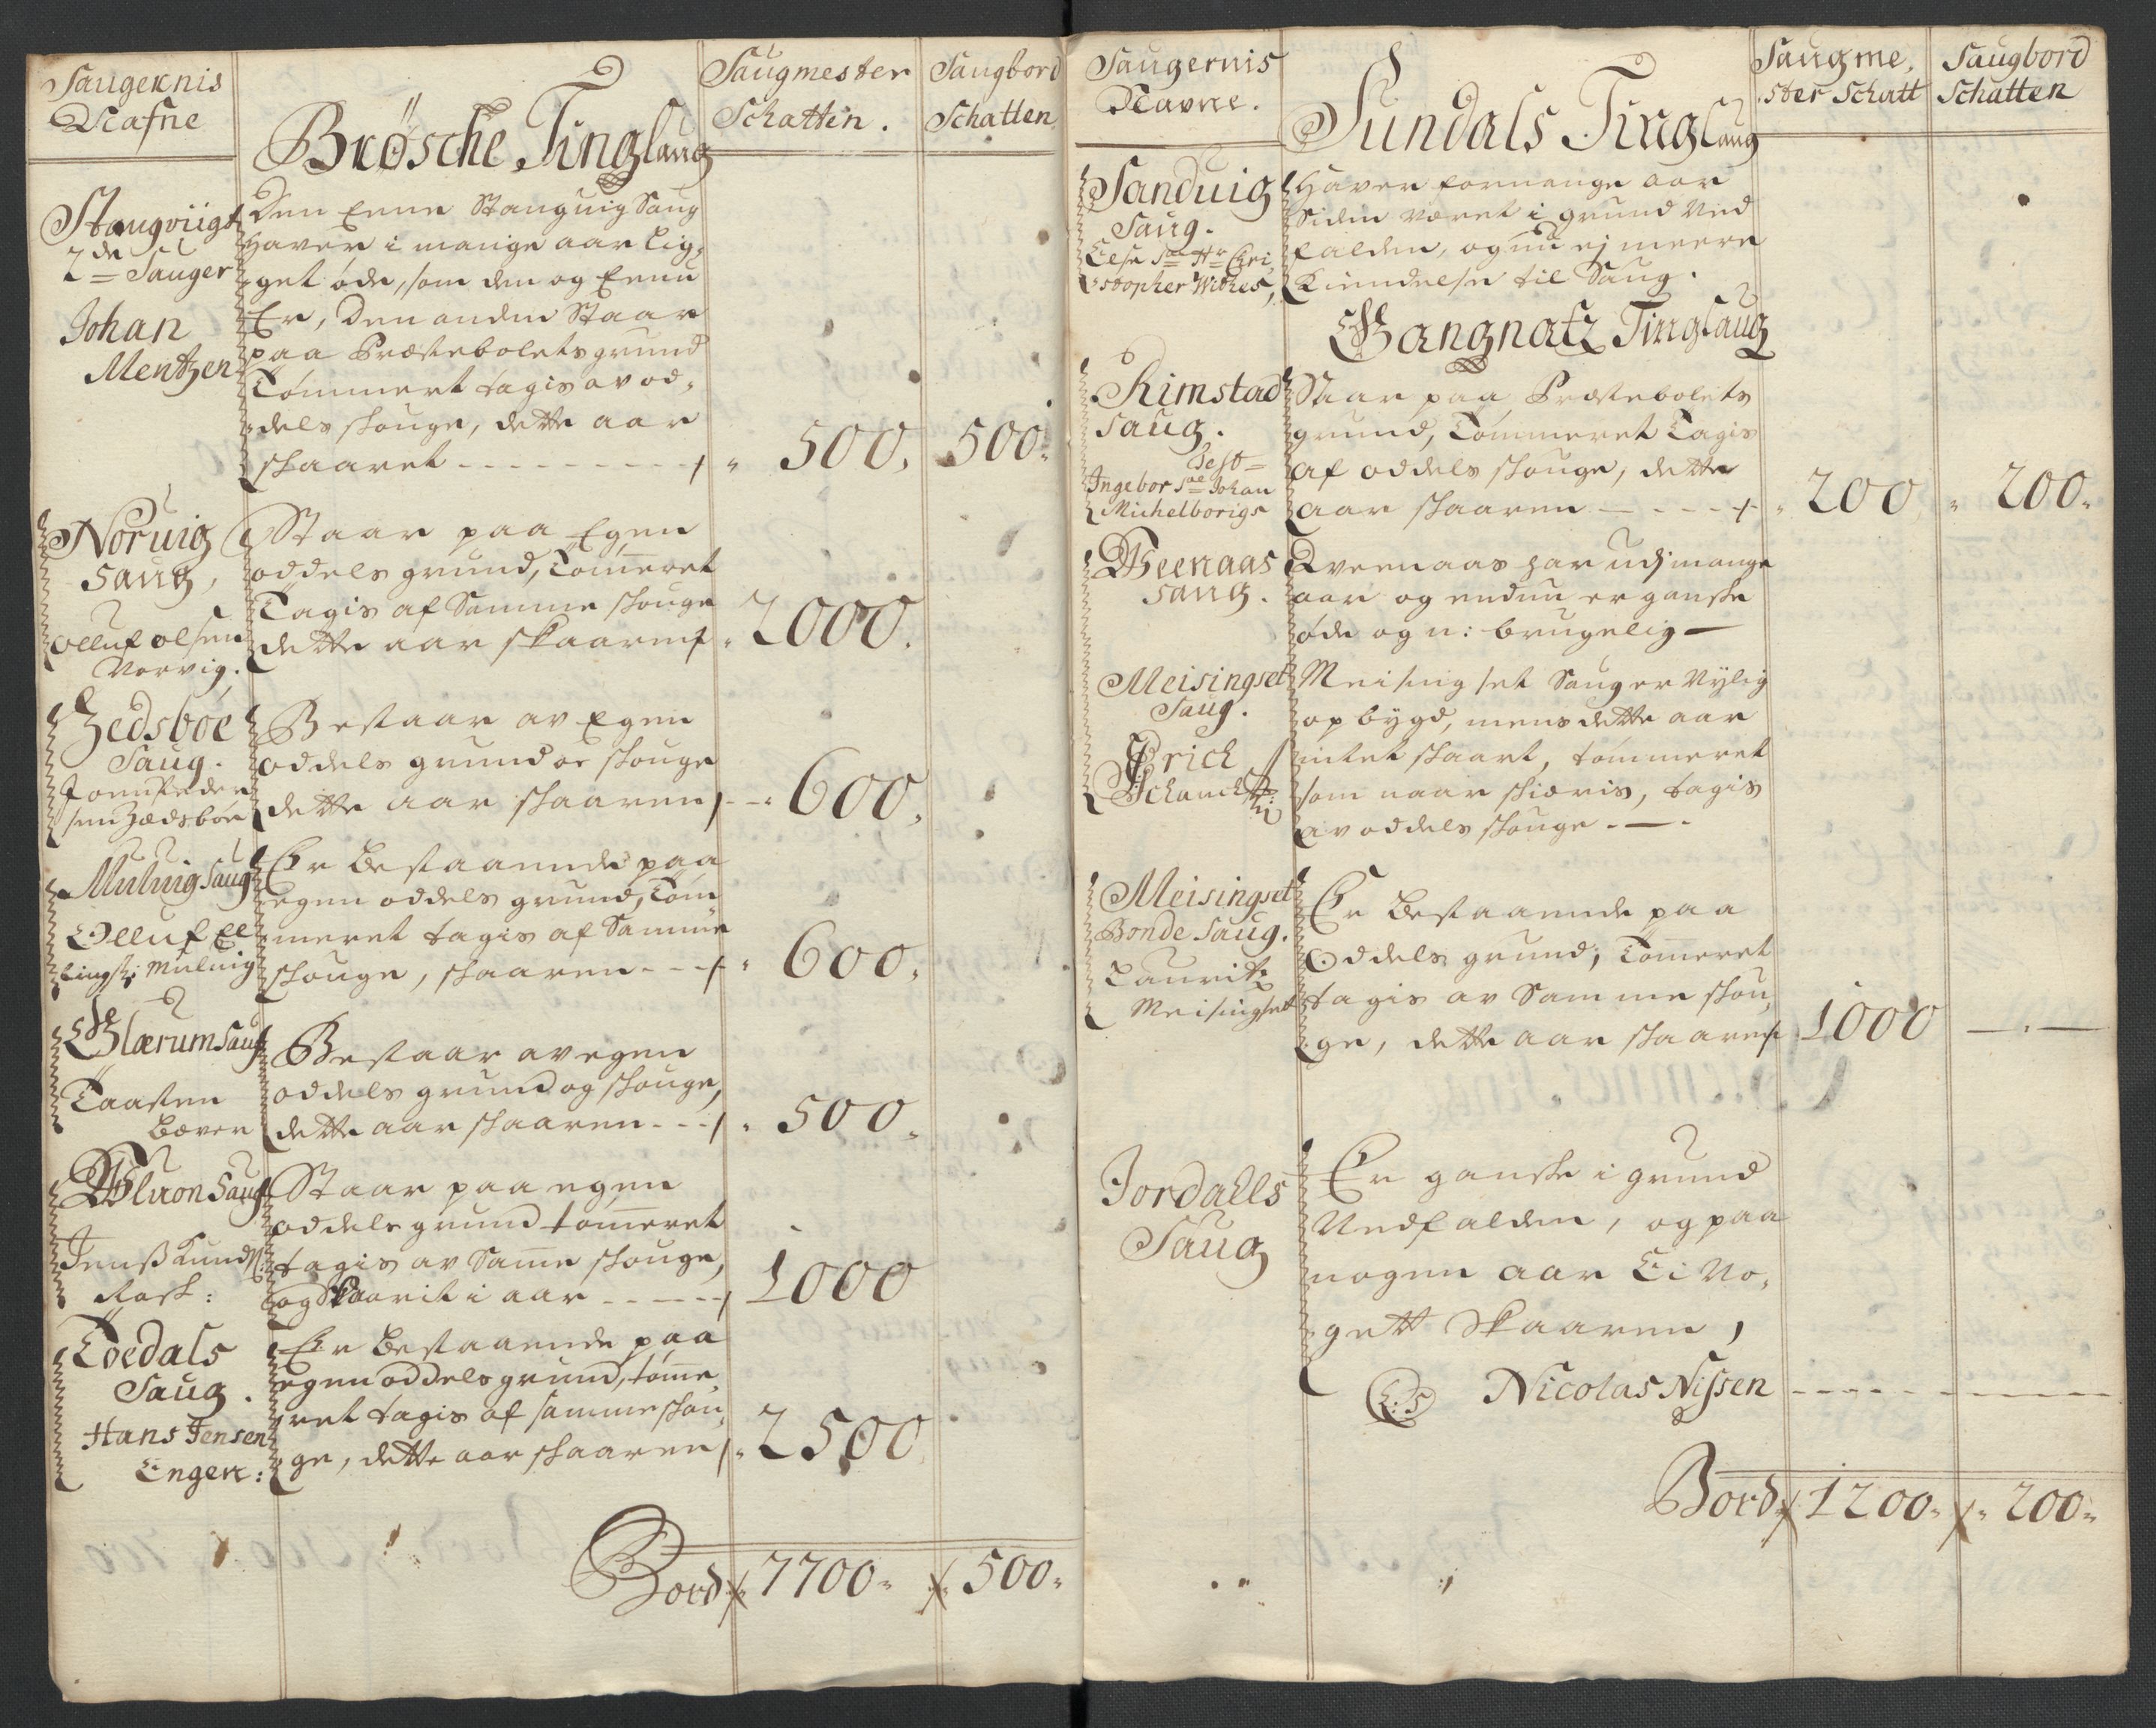 Saugernis
Nafne
Brøsche Tinglaug
Saugmester
Schatten.
Saugbord
Schatten
Stangviigs
2de Sauger
Johan
Mentzen
Den Eene Stanguig Saug
Haver i mange aar lig,
get øde, som den og Ennu
Er, Den anden Staar
paa Præstebolets grund
Tømmert tagis av od,
dels skouge, dette aar
skaaret
500,
500.
Noruig
Saug,
Olluf olsen
Norvig.
Staar paa Egen
oddels grund, Tømeret
Tagis af Samme skouge
dette aar skaaren
2000.
Zedsbøe
Saug.
Joen Peder
sen Zedsbøe
Bestaar av Egen
oddels grund oc skouge
dette aar skaaren
600,
Muluig Saug
Olluf El
lingss: Muluig
Er bestaaende paa
egen oddels grund, Tøm
meret tagis af Samme
skouge, skaaren
600,
Glærum Saug
Taasten
Bæver
Bestaar av egen
oddels grund og skouge,
dette aar skaaren
500,
Saug
Jens Knuds:
Rosk:
Staar paa egen
oddels grund tømeret
tagis av Same skouge,
og Skaarit i aar
1000
Toedals
Saug.
Hans Jensen
Enger:
Er bestaaende paa
egen oddels grund, tøme,
ret tagis af samme skou,
ge, dette aar skaaren
2500
Bord 7700. 500.
Saugernis
Navne.
Sundals Tinglaug
Saugme,
ster Schatt
Saugbord
Schatten
Sanduig
Saug.
Else Sal Hr Chri,
stopher Wiches,
Haver for mange aar
siden været i grund Ned
falden, og nu ej meere
Kiendelse til Saug.
Gangnatz Tinglaug
Rimstad
Saug.
Ingebor Sal Johan
Michelborigs
Staar paa Præstebolets
grund, Tømmeret Tagis
af oddels skouge, dette
aar skaaren
200
200.
Qveenaas
Saug.
Qveenaas har udj mange
aar og endnu er ganske
øde og u: brugelig
Meisingset
Saug.
Erich
Schanche
Meisingset Saug er Nylig
op bygd, mens dette aar
intet skaart, tømmeret
som naar skiæris, tagis
av oddels skouge.
Meisingset
Bonde Saug.
Lauritz
Meisingset
Er bestaaende paa
Oddels grund, Tømeret
tagis av Samme skou,
ge, dette aar skaaren
1000
Jordalls
Saug
Er ganske i grund
Nedfalden, og paa
nogen aar Ei No,
gett Skaaren,
L: S Nicolas Nissen
Bord 1200. 200.